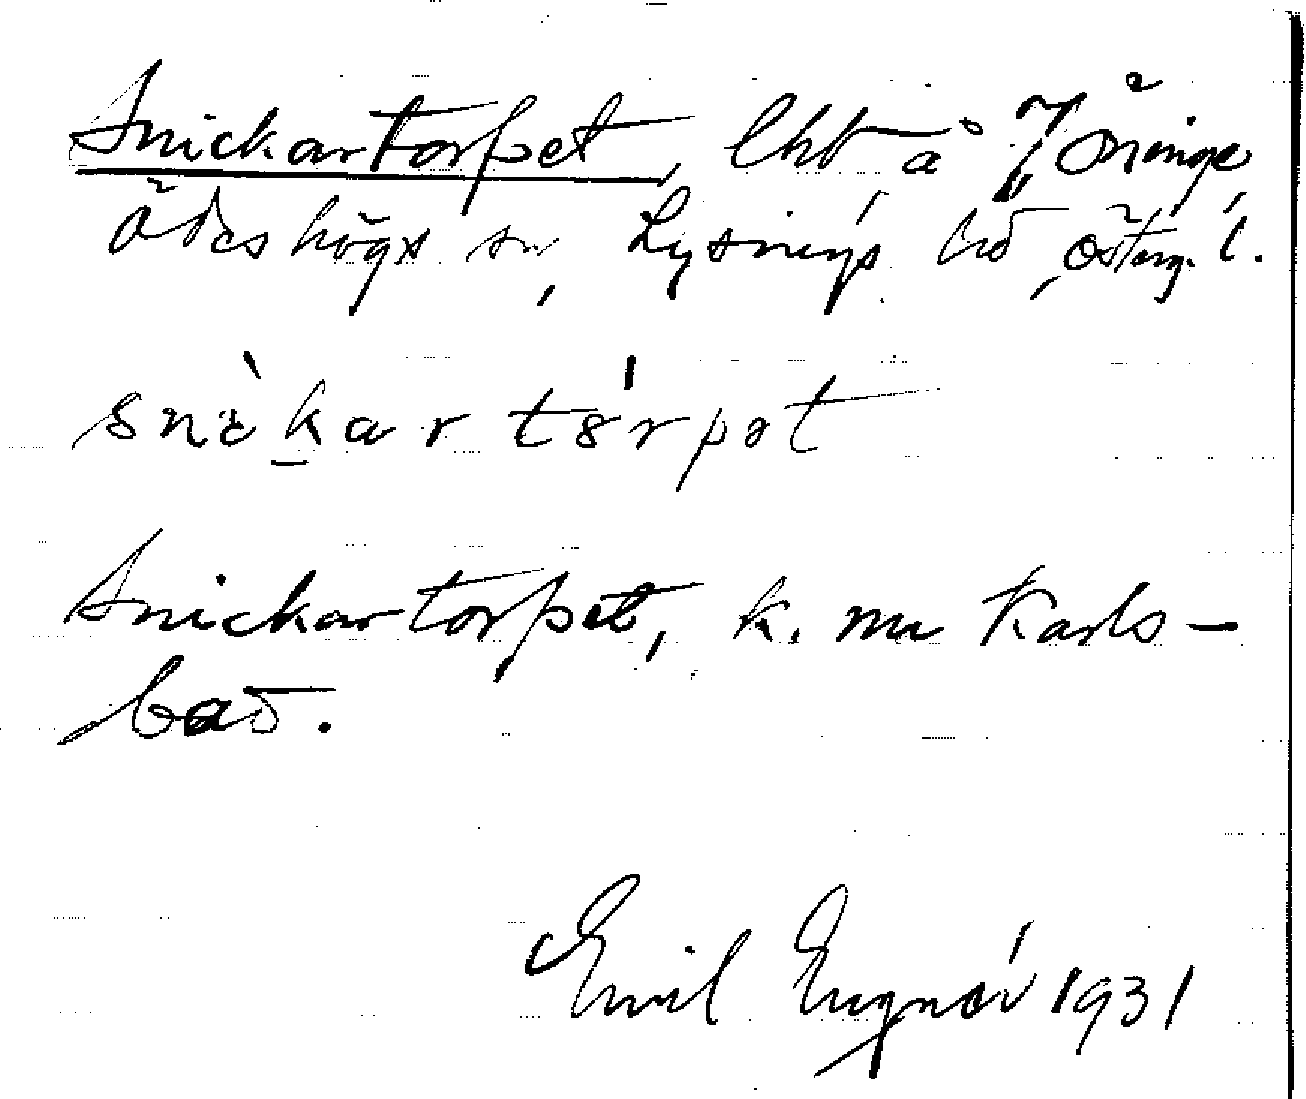 Snickartorpet, lht å Öninge
Ödeshögs sn, Lysings hd, Österg. l.
snèkar tórpət
Snickartorpet, k. nu Karls-
bad.
Emil Engnér 1931